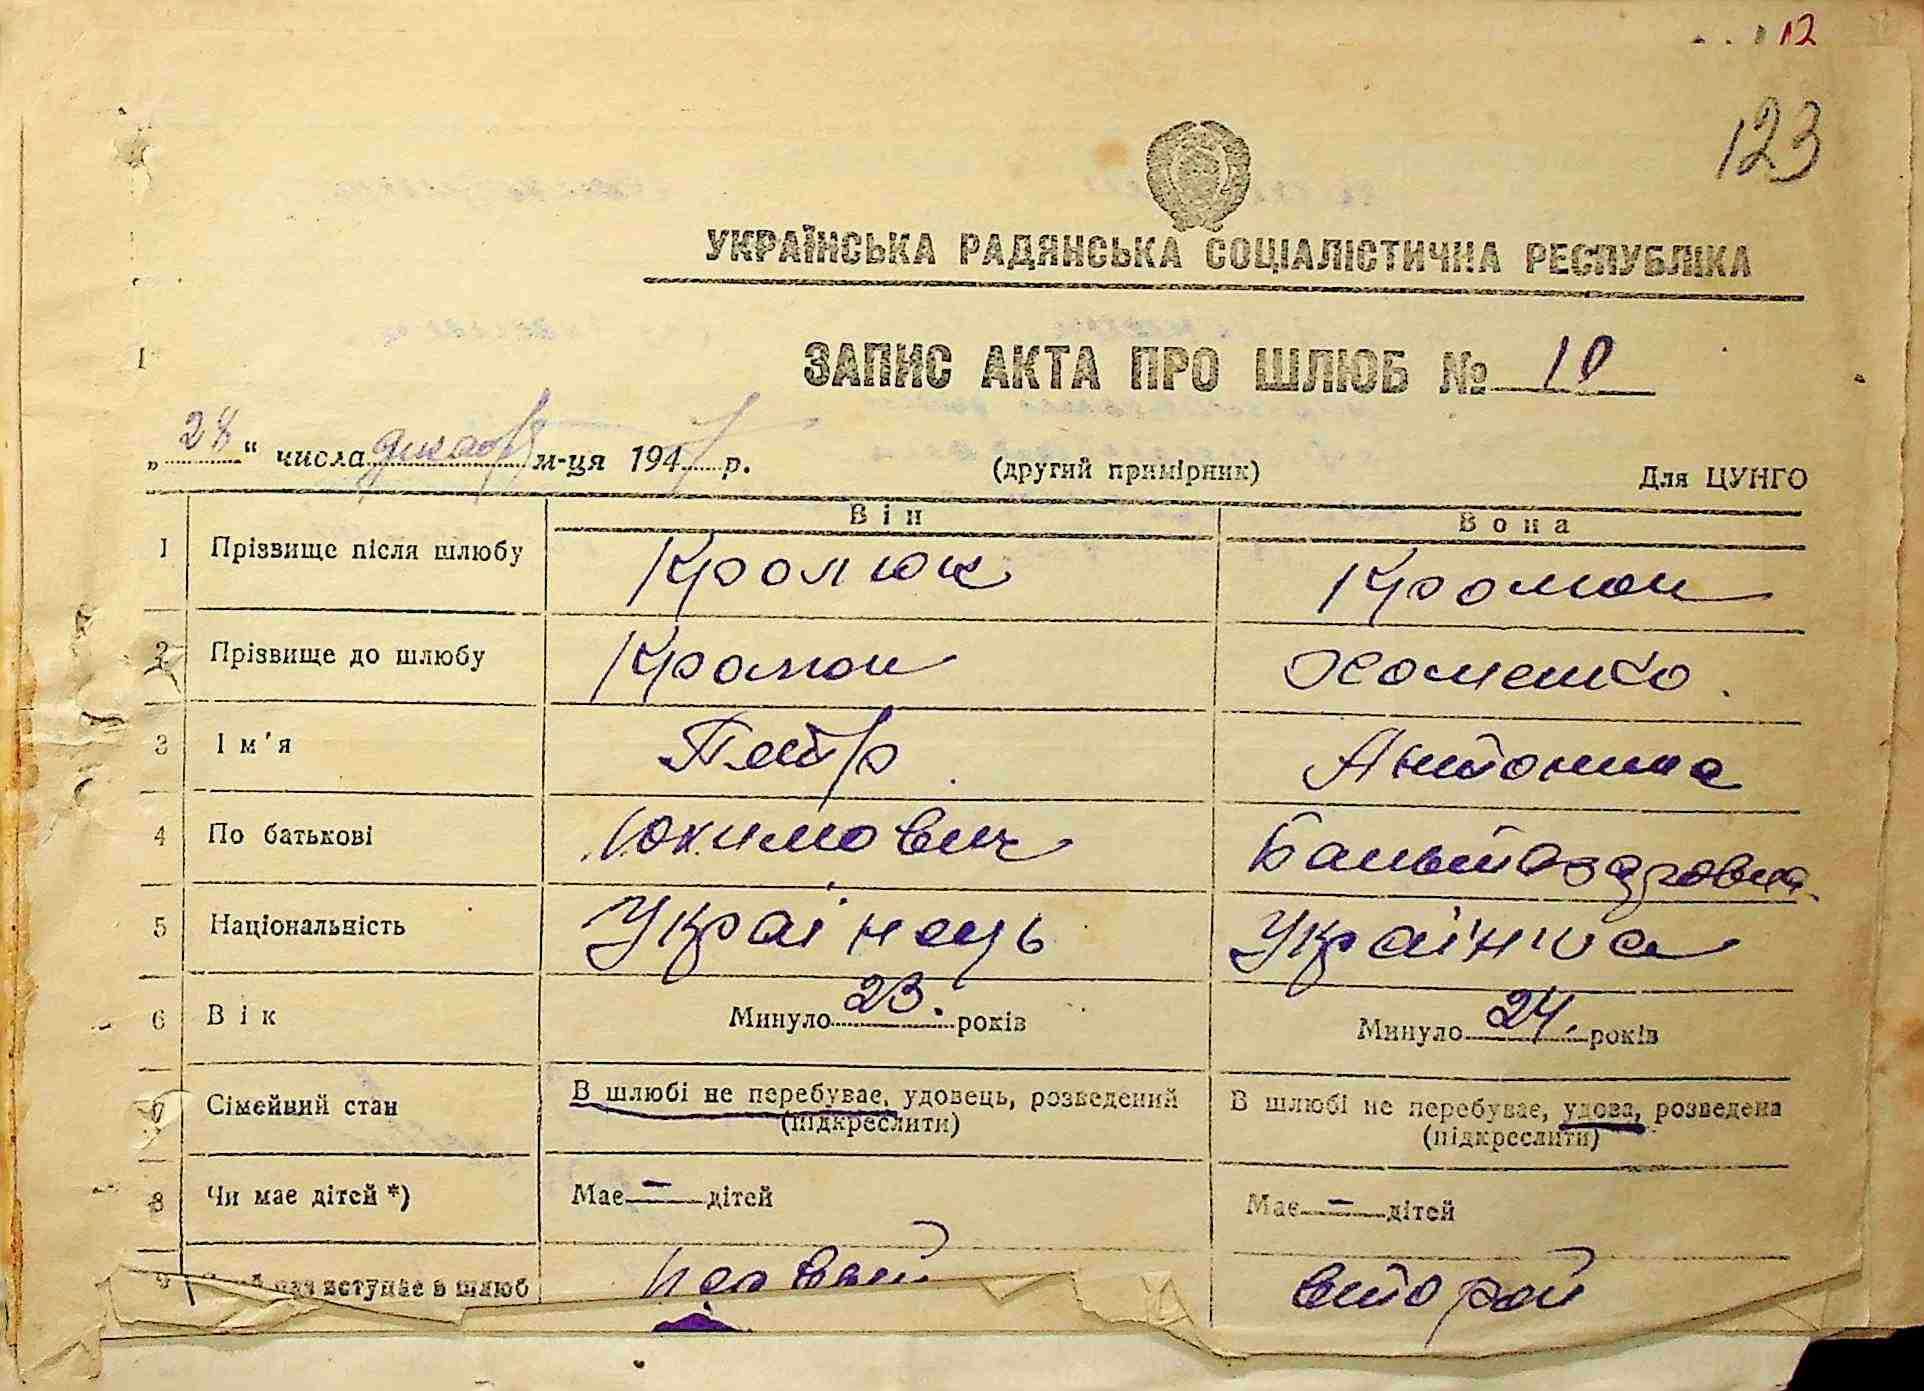 12
123
УКРАЇНСЬКА РАДЯНСЬКА СОЦІАЛІСТИЧНА РЕСПУБЛІКА
ЗАПИС АКТА ПРО ШЛЮБ № 10
„28" числа декабря м-ця 1947 р. (другий примірник) Для ЦУНГО
Він Вона
1 Прізвище після шлюбу Кролюк Кролюк
2 Прізвище до шлюбу Кролюк Хоменко
3 Ім'я Петр Антонина
4 По батькові Юхимович
5 Національність Українець Українка
6 Вік Минуло 23. років Минуло 24. років
7 Сімейний стан В шлюбі не перебуває, удовець, розведений В шлюбі не перебуває, удова, розведена
(підкреслити) (підкреслити)
8 Чи має дітей *) Має — дітей Має — дітей
9 раз вступає в шлюб первый второй